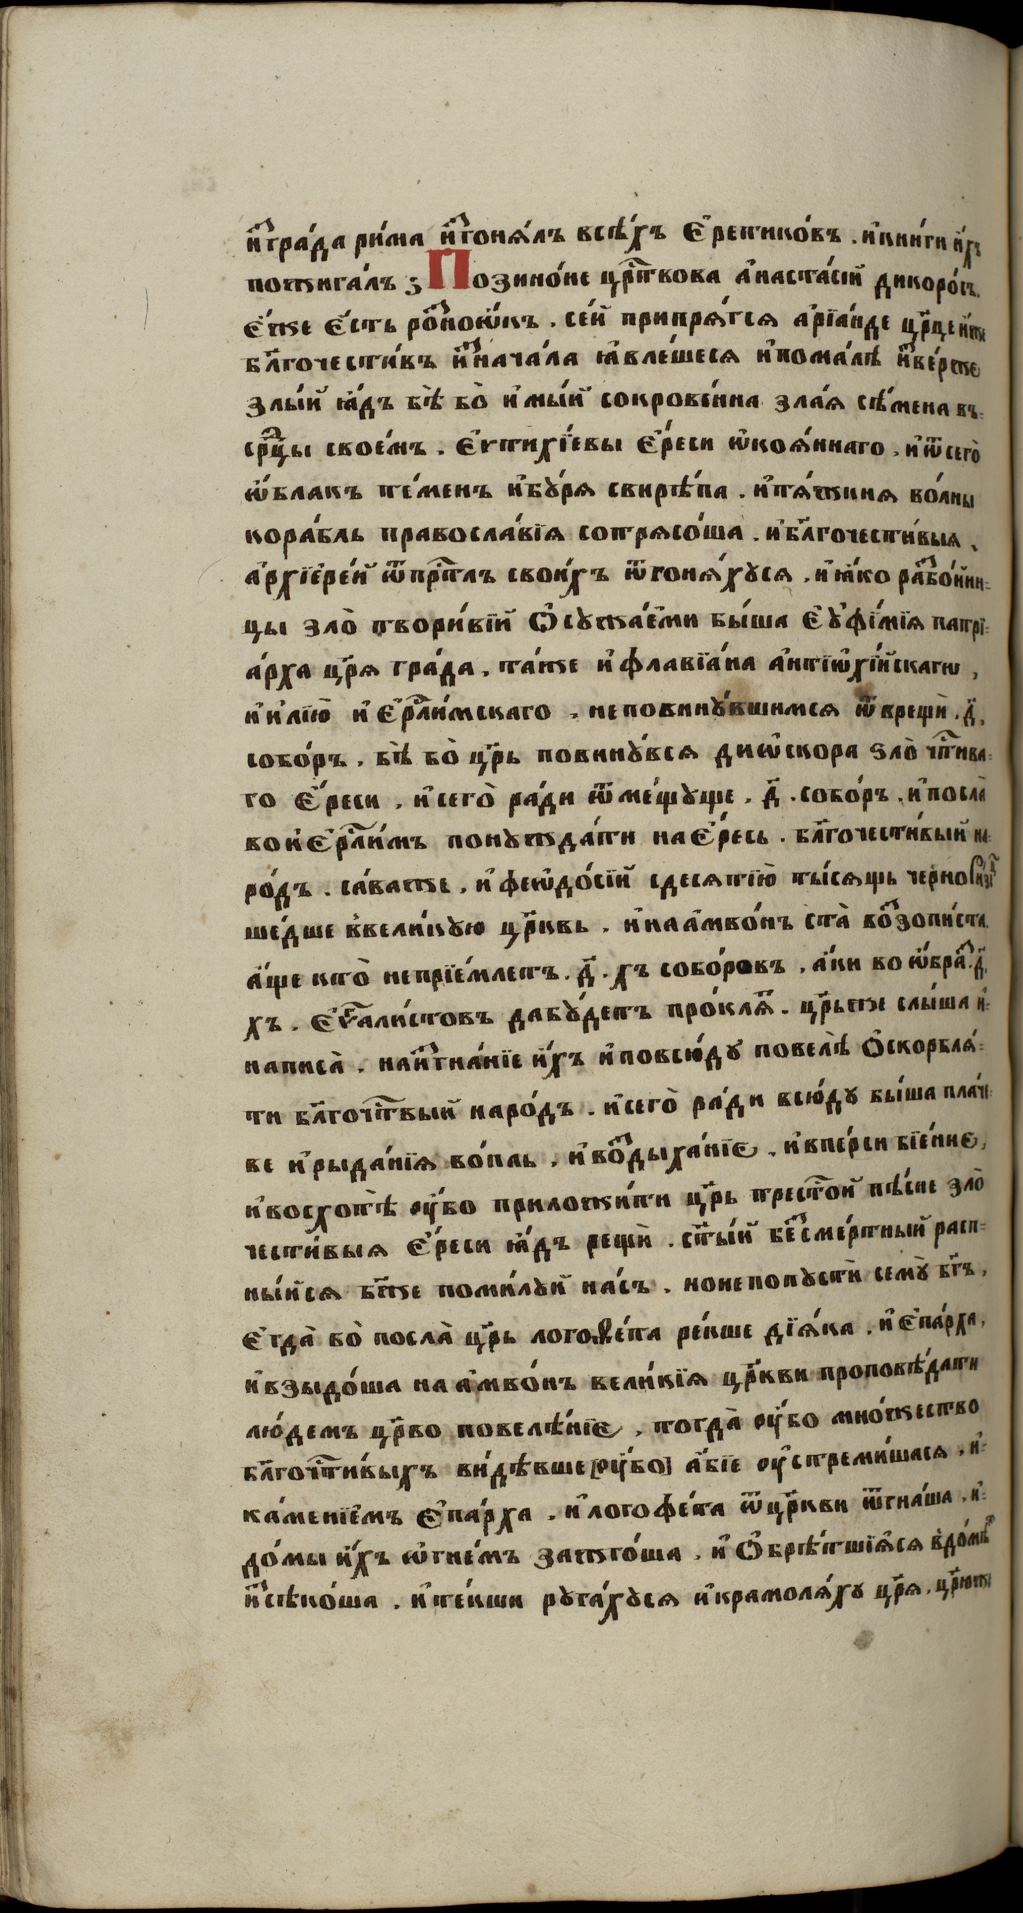 и҆з̾гра́да ри́ма и҆з̾гоня́лъ всѣ́хъ є҆ретико́въ . и҆кни́ги и҆́хъ
пожига́лъ ꙁ Позино́не црⷭ҇твова а҆наста́сїй дикоро́съ
є҆́же є҆́сть ро́з̾ноѻ҆́къ . се́й припря́гся а҆рїа́нде цр҃це и҆́же
бл҃гочести́въ и҆з̾нача́ла ꙗ҆вле́шеся и҆пома́лѣ и҆з̾ве́рже
злы́й ꙗ҆́дъ бѣ̀ бо̀ и҆мы́й сокрове́нна зла́я сѣ́мена въ
срⷣцы свое́мъ . є҆ѵтихїе́вы є҆́реси ѡ҆коя́ннаго , и҆ѿсего̀
ѡ҆́блакъ те́менъ и҆бꙋ́ря свирѣ́па . и҆тя́жкия во́лны
кора́бль правосла́вїя сотрясо́ша . и҆бл҃гочести́выя ,
а҆рхїере́й ѿпрⷭ҇тлъ свои́хъ ѿгоня́хꙋся , и҆ꙗ҆́ко раз̾бо́йни
цы зло̀ твори́вїй ѻ҆сꙋжа́еми бы́ша є҆ꙋфи́мїя патрї
а́рха цр҃я гра́да , та́же и҆флавїа́на а҆нтїѡхі́йскагѡ ,
и҆и҆лїю̀ и҆є҆рⷭ҇ли́мскаго , неповинꙋ́вшимся ѿврещѝ . д҃ ,
собо́ръ . бѣ̀ бо̀ цр҃ь повинꙋ́вся диѡ́скора ѕло̀ чⷭ҇тива
го є҆́реси , и҆сего̀ ра́ди ѿме́щꙋще . д҃ . собо́ръ . и҆посла̀
вои҆є҆рⷭ҇ли́мъ понꙋжда́ти нає҆́ресь . бл҃гочести́вый на
ро́дъ . са́важе , и҆феѡдо́сїй сдесятїю̀ ты́сящь черно
ше́дше в҆вели́кꙋю цр҃квь . и҆наа҆мво́нъ ста̀ воз̾зописта
а҆́ще кто̀ непрїе́млетъ . д҃ . хъ собо́ровъ , а҆́ки во ѡ҆́браз̾ . д҃
хъ . є҆ѵⷢ҇али́стовъ дабꙋ́детъ про́клѧⷮ . цр҃ьже слы́ша и҆
написа̀ . наи҆з̾гна́нїе и҆́хъ и҆повсю́дꙋ повелѣ̀ ѻ҆скорблѧ́
ти бл҃гочⷭ҇твый наро́дъ . и҆сего̀ ра́ди всю́дꙋ бы́ша пла́ч
ве и҆рыда́нїя во́пль . и҆воз̾дыха́нїе , и҆впе́рси бїе́ние ,
и҆восхотѣ̀ ѹ҆́бо приложи́ти цр҃ь трест҃о́й пѣ́сне зло̀
чести́выя є҆́реси ꙗ҆́дъ рещѝ . ст҃ы́й без̾сме́ртный расп
ны́йся бж҃е поми́лꙋй на́съ . нонепопꙋстѝ семꙋ̀ бг҃ъ ,
є҆гда̀ бо̀ посла̀ цр҃ь логоѳе́та ре́кше дїя́ка . и҆є҆па́рха ,
и҆взыдо́ша на а҆мво́нъ вели́кїя цр҃кви проповѣ́дати
лю́демъ цр҃во повелѣ́нїе , тогда̀ ѹ҆́бо мно́жество
бл҃гочⷭ҇ти́выхъ ви́дѣвше [ѹ҆́бо] а҆́бїе ѹ҆стреми́шася , и҆
ка́менїемъ є҆па́рха . и҆логофе́та ѿцр҃кви ѿгна́ша . и҆
до́мы и҆́хъ ѻ҆гне́мъ зажго́ша . и҆ѻ҆брѣ́тшїяся в҆до́мѣⷯ
и҆з̾сѣко́ша . и҆те́кши рꙋга́хꙋся и҆крамоля́хꙋ цр҃я . цр҃юже